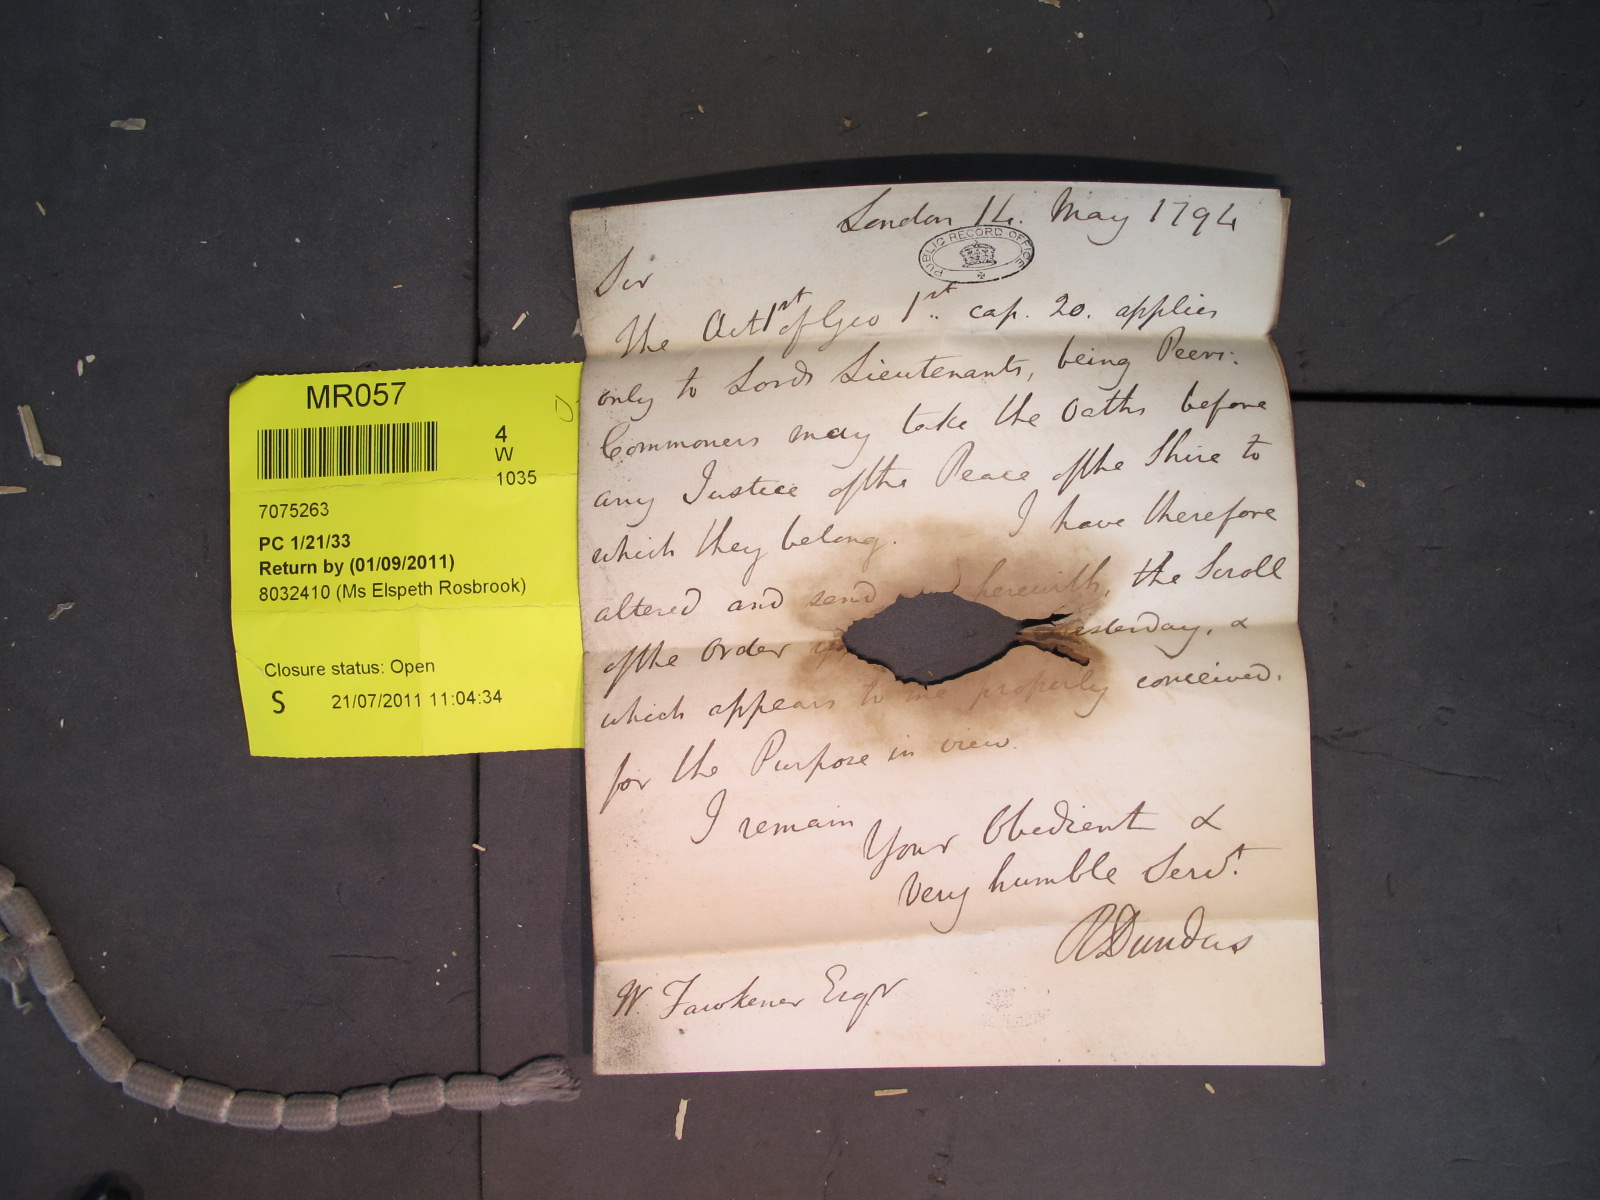 MR057
4
W
1035
7075263
PC 1/21/33
Return by (01/09/2011)
8032410 (Ms Elspeth Rosbrook)
Closure status: Open
S 21/07/2011 11:04:34
London 14. May 1794
PUBLIC RECORD OFFICE
Sir
The Act 1st of Geo 1st cap. 20. applies
only to Lords Lieutenants, being Peers:
Commoners may take the Oaths before
any Justice of the Peace of the Shire to
which they belong. I have therefore
altered and send herewith, the Scroll
of the Order yesterday, &
which appears to me properly conceived.
for the Purpose in view.
I remain
Your Obedient &
Very humble Servt.
R Dundas
W. Fawkener Esqr